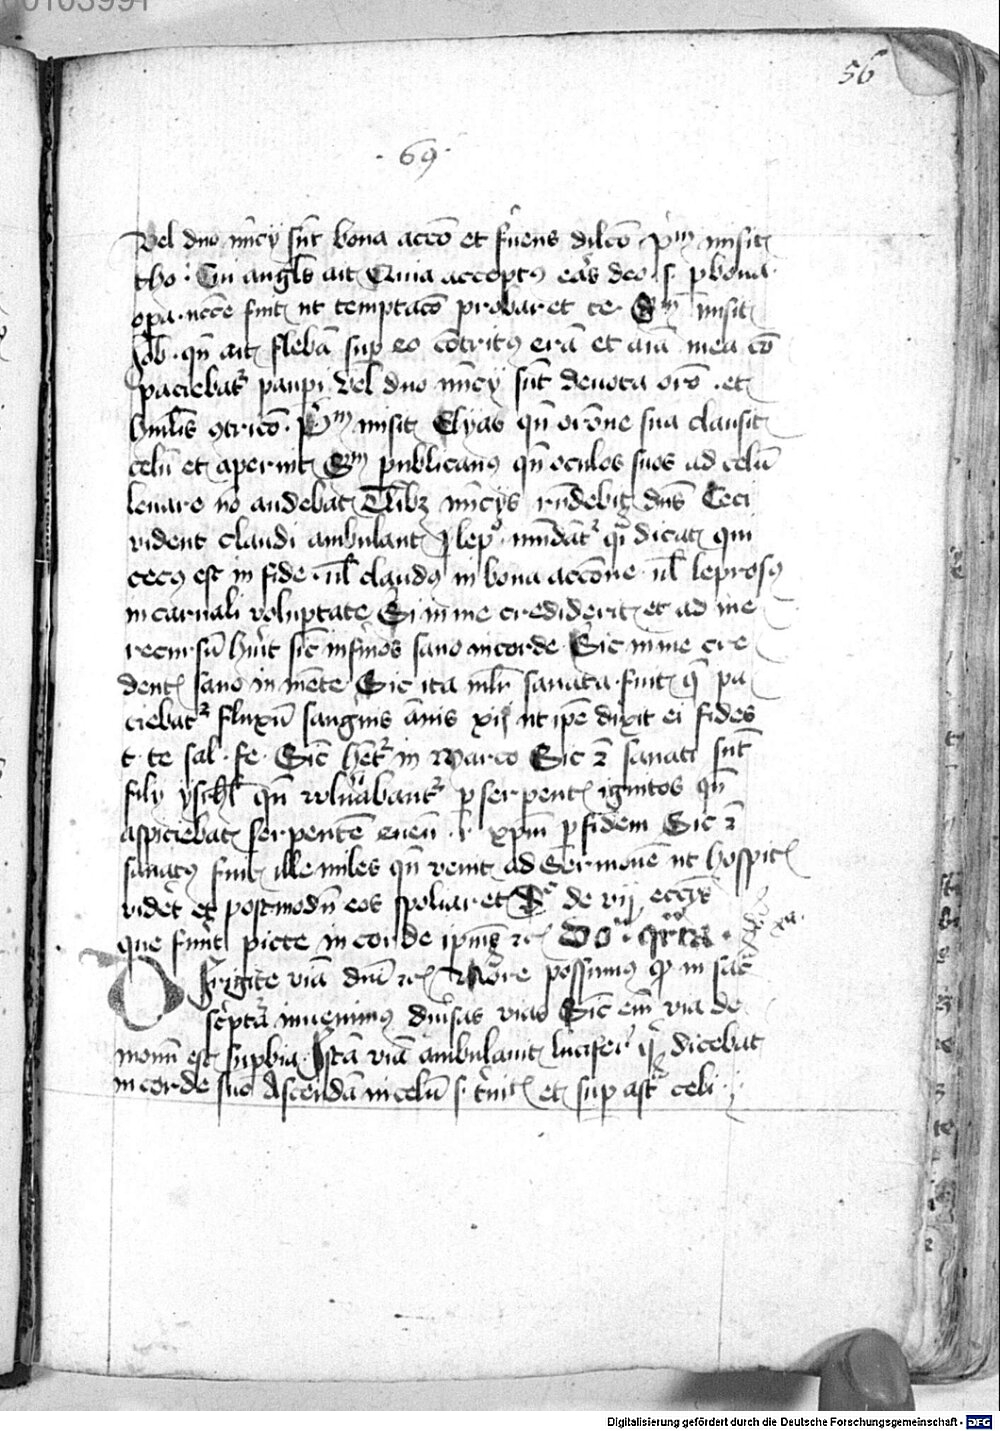 56
· 69 ·
Vel duo nūcÿ sūt bona accō et fruens dilcō p̄m misit
tho : Cui angls ait Quia acceptꝰ eras deo · s · p bona
opa · ncce fuit ut temptacō probaret te S̄m misit
Job · qn̄ ait flebā sup eo cōtritꝰ erā et aīa mea cō
paciebat᷑ paupi Vel duo nūcÿ sūt devota orō · et
hūilis ꝯtricō · P̄m misit Elyas qn̄ orōne sua clausit
celū et aperuit S̄m publicanꝰ qn̄ oculos suos ad celū
levare nō audebat Talibꝫ nūcÿs rn̄debit dn̄s Ceci
vident claudi ambulant lep᷒ · mūdāt᷑ qͥ dicat qui
cecꝰ est in fide · ul̄ claudꝰ in bona accōne · ul̄ leprosꝰ
in carnali voluptate Si in me crediderit et ad me
recursū hūit sic infirmos sano in corde Sic in me cre
dent sano in mēte Sic ita mlr̄ sanata fuit q̄ pa
ciebat᷑ fluxū sangīnis ānis xij ut ip̄e dixit ei fides
t · te sal · fe · Sic hēt᷑ in Marco Sic ⁊ sanati sūt
filij ysrl̄ qn̄ vulnabant᷑ p serpent ignitos qn̄
aspiciebāt serpentē eneū · i · xp̄m p fidem Sic ⁊
sanatꝰ fuit ille miles qn̄ venit ad sermonē ut hospit
vidēt et postmodū eos spoliaret de vij eccÿs
que fuūt picte in corde ipiꝰ ⁊c̄
Dirigite viā dn̄i ⁊c̄ possumus in sac̄
sc̄ptᵃ invenimꝰ dīvsas vias Sic em̄ via de
monū est supbia Istā viā ambulavit lucifer q dicebat
in corde suo Ascendā in celū s · t̄nit et sup astᵃ celi ·
Digitalisierung gefördert durch die Deutsche Forschungsgemeinschaft - DFG